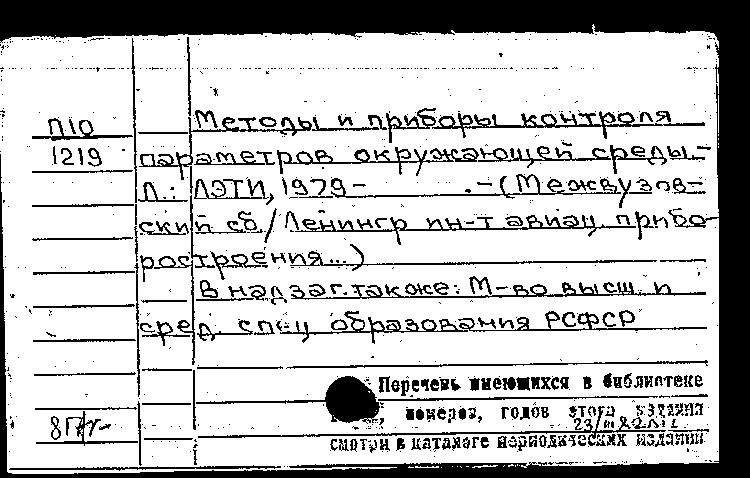 П10 Методы и приборы контроля
1219 параметров окружающей среды.-
Л.: ЛЭТИ, 1979- .-(Межвузов-
ский сб./Ленингр ин-т авиац. прибо-
ростроения...)
В надзаг.также: М-во высш. и
сред. спец образования РСФСР
Перечень имеющихся в библиотеке
номеров, годов этого издания
23/III
смотри в каталоге периодических изданий